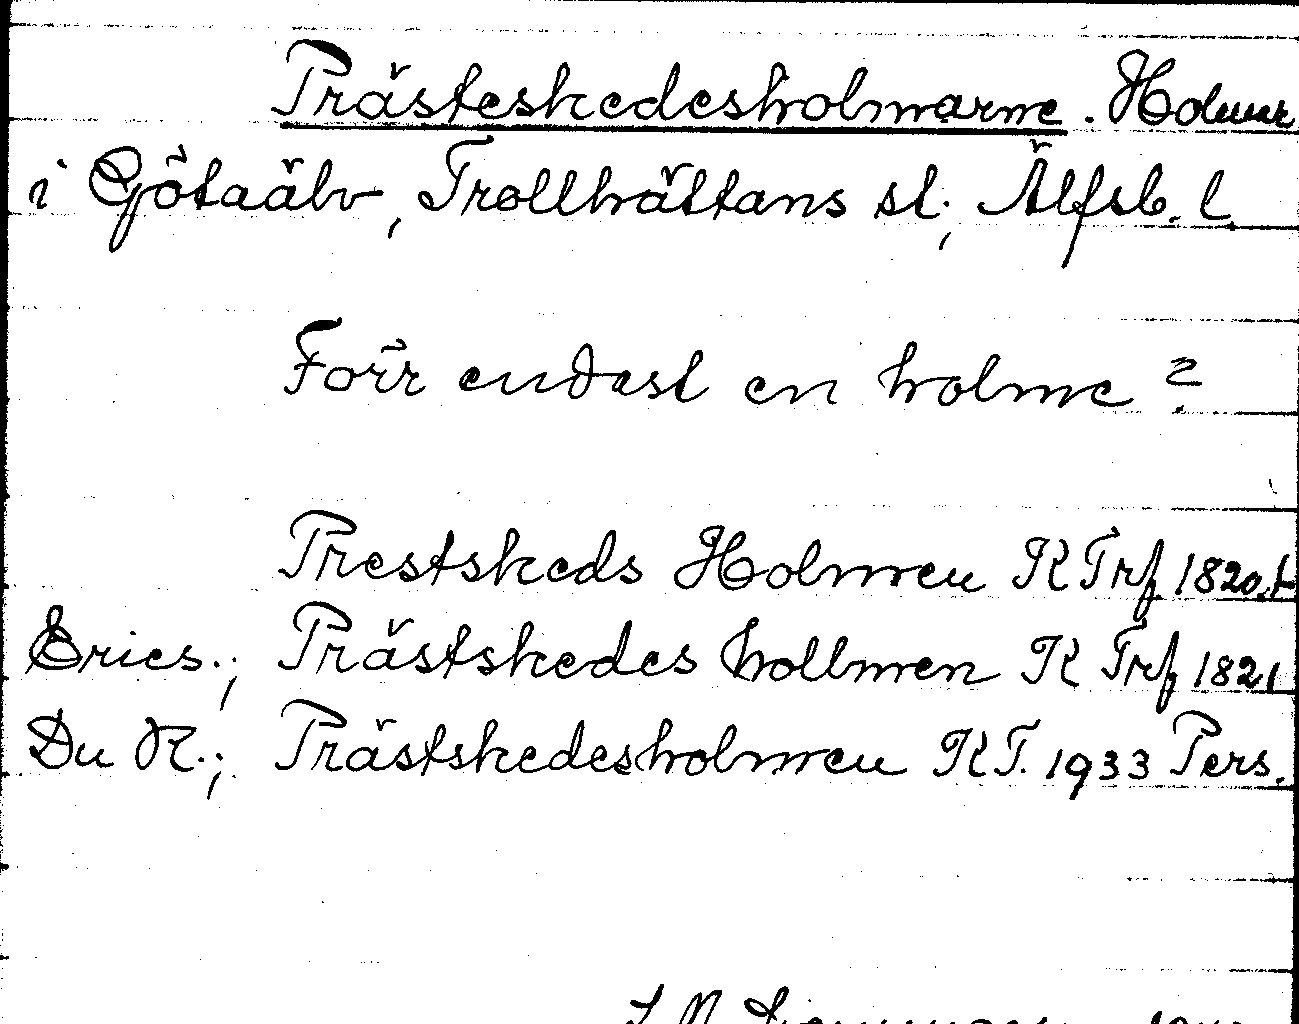 Prästeskedesholmarne. Holmar
i Götaälv, Trollhättans st., Älfsb. l.
Förr endast en holme?
Prestskeds Holmen K Trf 1820.t
Erics.; Prästskedes hollmen K Trf 1821
Du R.; Prästskedesholmen KT. 1933 Pers.